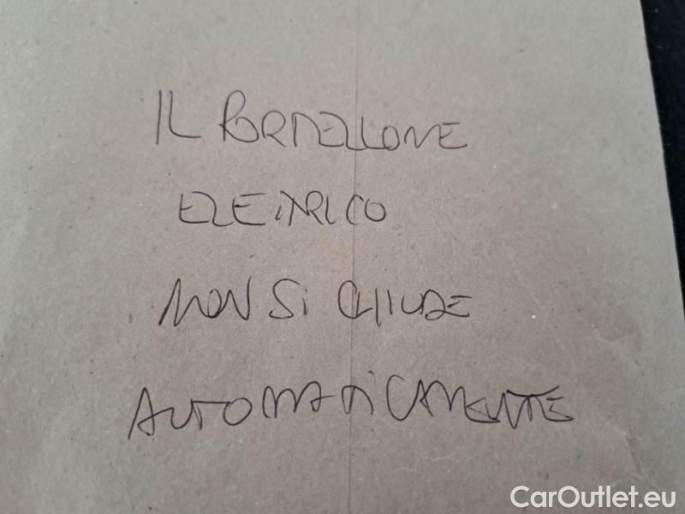 IL PORTELLONE
ELETTRICO
NON SI CHIUDE
AUTOMATICAMENTE
CarOutlet.eu